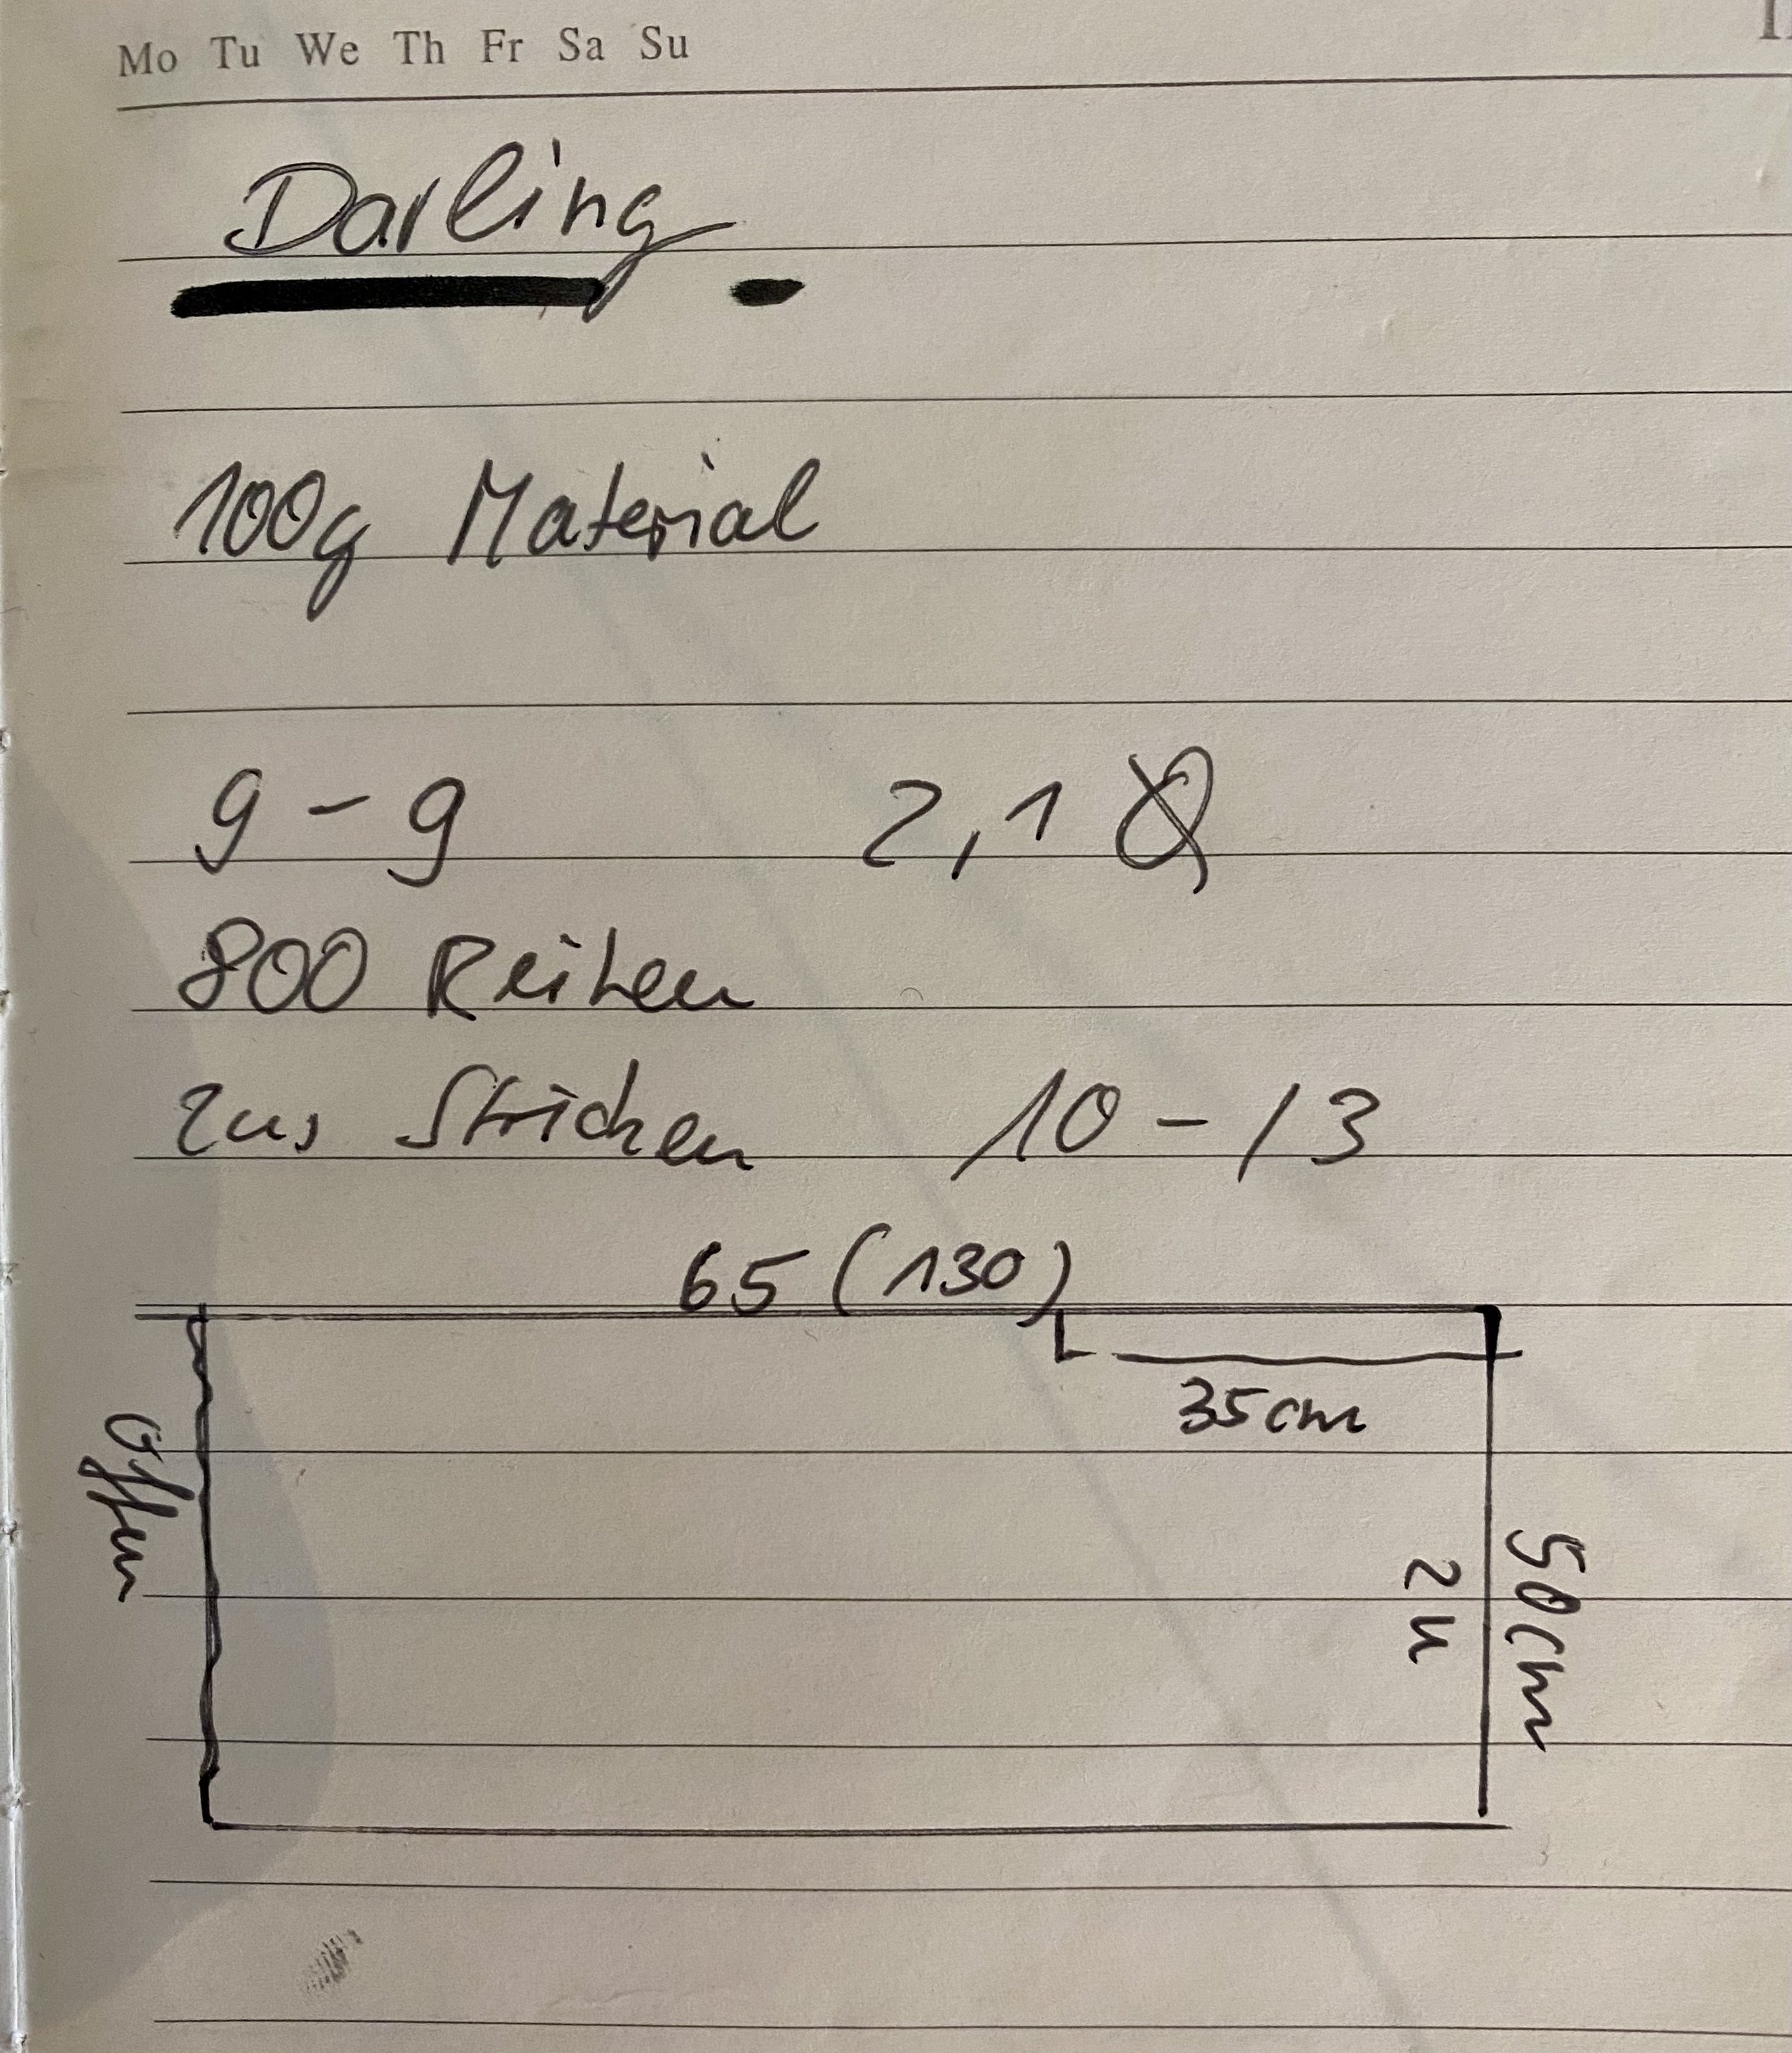 Mo Tu We Th Fr Sa Su
Darling
100g Material
g - g 2,1
800 Reihen
zus Stricken 10 - 13
65 (130)
35cm
offen
zu
50cm